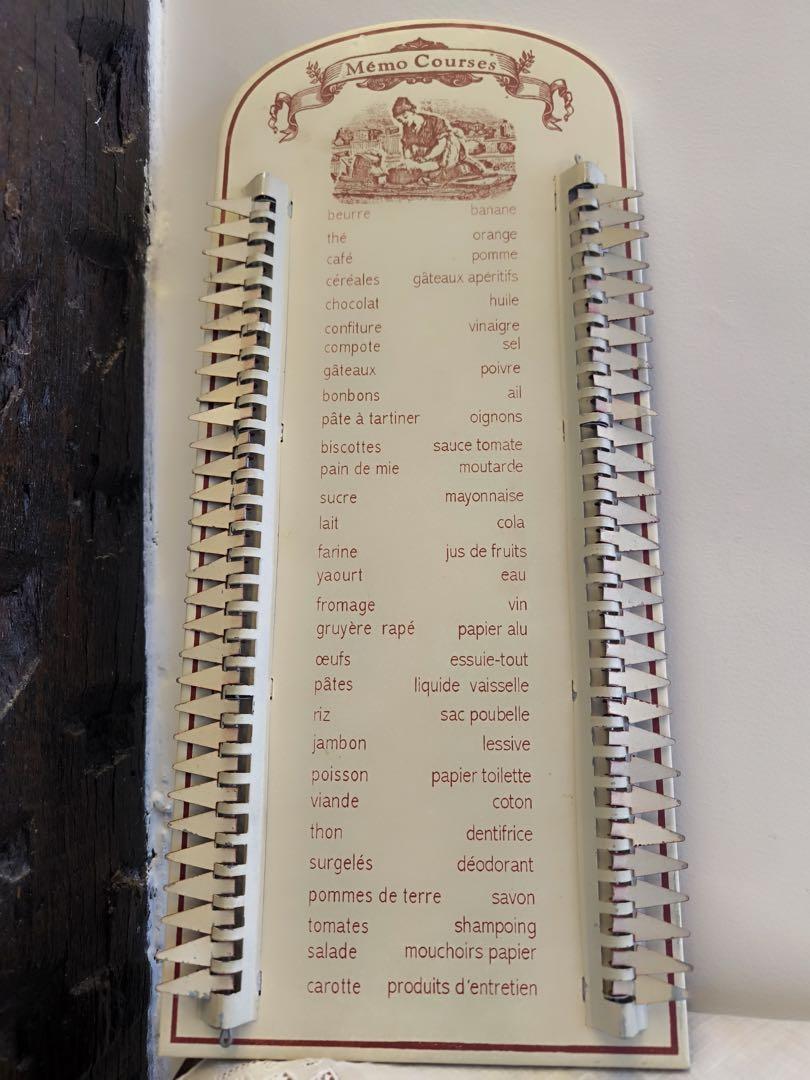 Mémo Courses
beurre banane
thé orange
café pomme
céréales gâteaux apéritifs
chocolat huile
confiture vinaigre
compote sel
gâteaux poivre
bonbons ail
pâte à tartiner oignons
biscottes sauce tomate
pain de mie moutarde
sucre mayonnaise
lait cola
farine jus de fruits
yaourt eau
fromage vin
gruyère rapé papier alu
œufs essuie-tout
pâtes liquide vaisselle
riz sac poubelle
jambon lessive
poisson papier toilette
viande coton
thon dentifrice
surgelés déodorant
pommes de terre savon
tomates shampoing
salade mouchoirs papier
carotte produits d'entretien